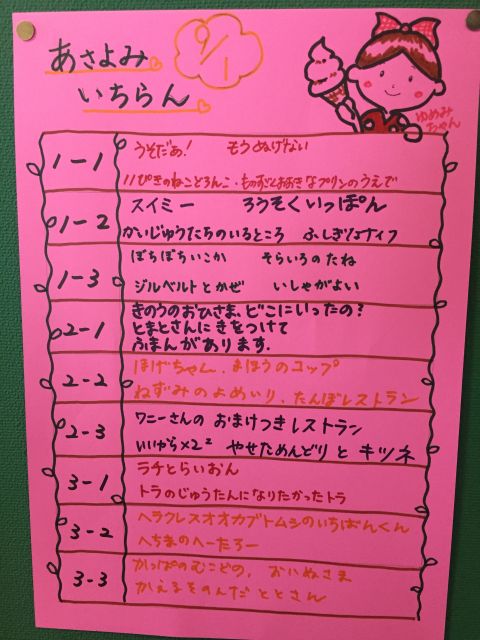 あさよみ
いちらん
9/1
ゆめみ
ちゃん
1-1 うそだぁ! そうぬけない
11ぴきのねことろんこ・ものすごくおおきなプリンのうえで
1-2 スイミー ろうそくいっぽん
かいじゅうたちのいるところ ふしぎなナイフ
1-3 ぼちぼちいこか そらいろのたね
ジルベルトとかぜ いしゃがよい
2-1 きのうのおひさま、どこにいったの?
とまとさんにきをつけて
ふまんがあります.
2-2 ほげちゃん、まほうのコップ
ねずみのよめいり、たんぼレストラン
2-3 ワニーさんの おまけつきレストラン
いいから×2² やせためんどり と キツネ
3-1 ラチとらいおん
トラのじゅうたんになりたかったトラ
3-2 ヘラクレスオオカブトムシのいちばんくん
へちまのへーたろー
3-3 かっぱのむこどの, おいぬさま
かえるをのんだ ととさん